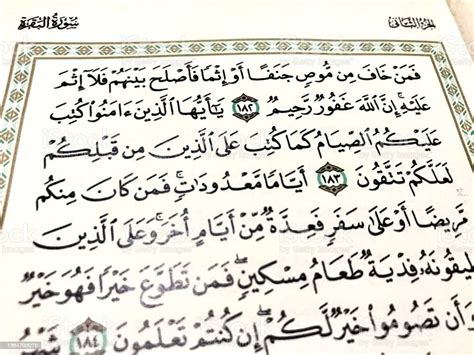 الجزء الثاني
سورة البقرة
فَمَنْ خَافَ مِن مُّوصٍ جَنَفًا أَوْ إِثْمًا فَأَصْلَحَ بَيْنَهُمْ فَلَآ إِثْمَ
عَلَيْهِ ۚ إِنَّ ٱللَّهَ غَفُورٌ رَّحِيمٌ ١٨٢ يَٰٓأَيُّهَا ٱلَّذِينَ ءَامَنُوا۟ كُتِبَ
عَلَيْكُمُ ٱلصِّيَامُ كَمَا كُتِبَ عَلَى ٱلَّذِينَ مِن قَبْلِكُمْ
لَعَلَّكُمْ تَتَّقُونَ ١٨٣ أَيَّامًا مَّعْدُودَٰتٍ ۚ فَمَن كَانَ مِنكُم
مَّرِيضًا أَوْ عَلَىٰ سَفَرٍ فَعِدَّةٌ مِّنْ أَيَّامٍ أُخَرَ ۚ وَعَلَى ٱلَّذِينَ
يُطِيقُونَهُۥ فِدْيَةٌ طَعَامُ مِسْكِينٍ ۖ فَمَن تَطَوَّعَ خَيْرًا فَهُوَ خَيْرٌ
أَن تَصُومُوا۟ خَيْرٌ لَّكُمْ ۖ إِن كُنتُمْ تَعْلَمُونَ ١٨٤ شَهْرُ